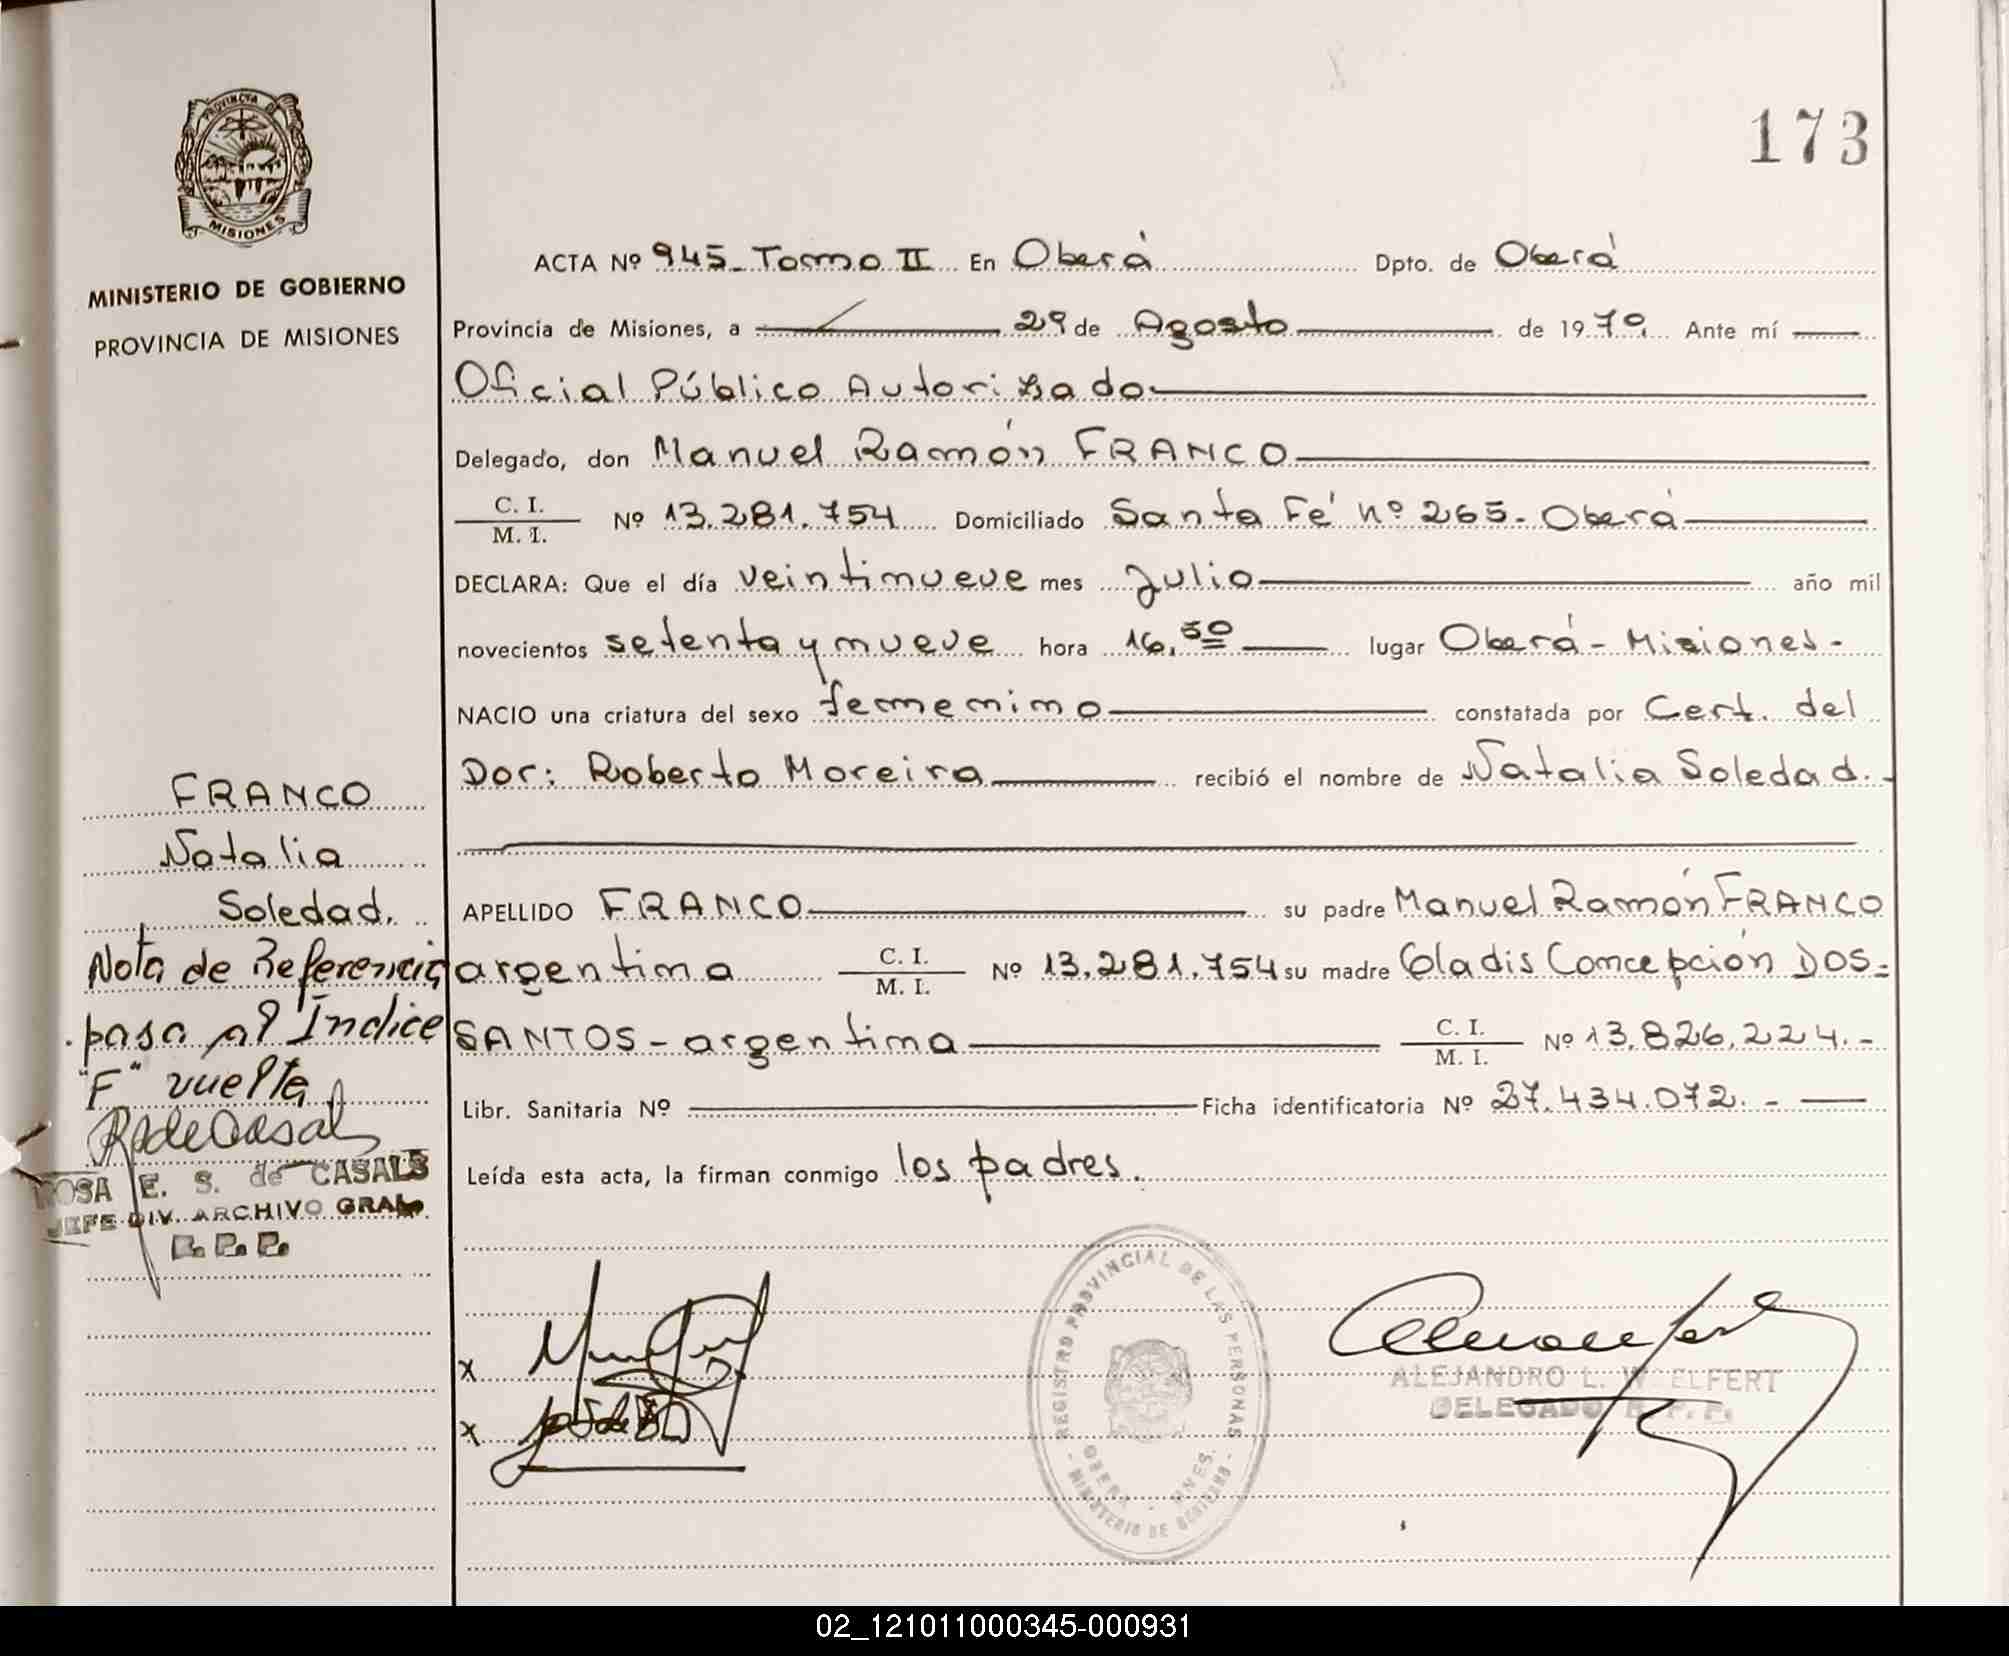 PROVINCIA DE
MISIONES
MINISTERIO DE GOBIERNO
PROVINCIA DE MISIONES
173
ACTA Nº 945_ Tomo II En Oberá Dpto. de Oberá
Provincia de Misiones, a 29 de Agosto de 1979 Ante mí
Oficial Público Autorizado
Delegado, don Manuel Ramón FRANCO
C. I.
M. I. Nº 13.281.754 Domiciliado Santa Fé nº 265. Oberá
DECLARA: Que el día veintinueve mes Julio año mil
novecientos setenta y nueve hora 16,50 lugar Oberá - Misiones -
NACIO una criatura del sexo femenino constatada por Cert. del
Dor: Roberto Moreira recibió el nombre de Natalia Soledad. -
APELLIDO FRANCO su padre Manuel Ramón FRANCO
argentino C. I. M. I. Nº 13.281.754 su madre Gladis Concepción DOS=
SANTOS - argentina C. I. M. I. Nº 13.826.224. -
Libr. Sanitaria Nº Ficha identificatoria Nº 27.434.072. -
Leída esta acta, la firman conmigo los padres.
FRANCO
Natalia
Soledad.
Nota de Referencia
pasa al Indice
"F" vuelta
ROSA E. S. de CASALS
JEFE DIV. ARCHIVO GRAL.
R. P. P.
x
x
REGISTRO PROVINCIAL DE LAS PERSONAS
OBERA - MNES.
- MINISTERIO DE GOBIERNO -
ALEJANDRO L. WELFERT
DELEGADO R. P. P.
02_121011000345-000931